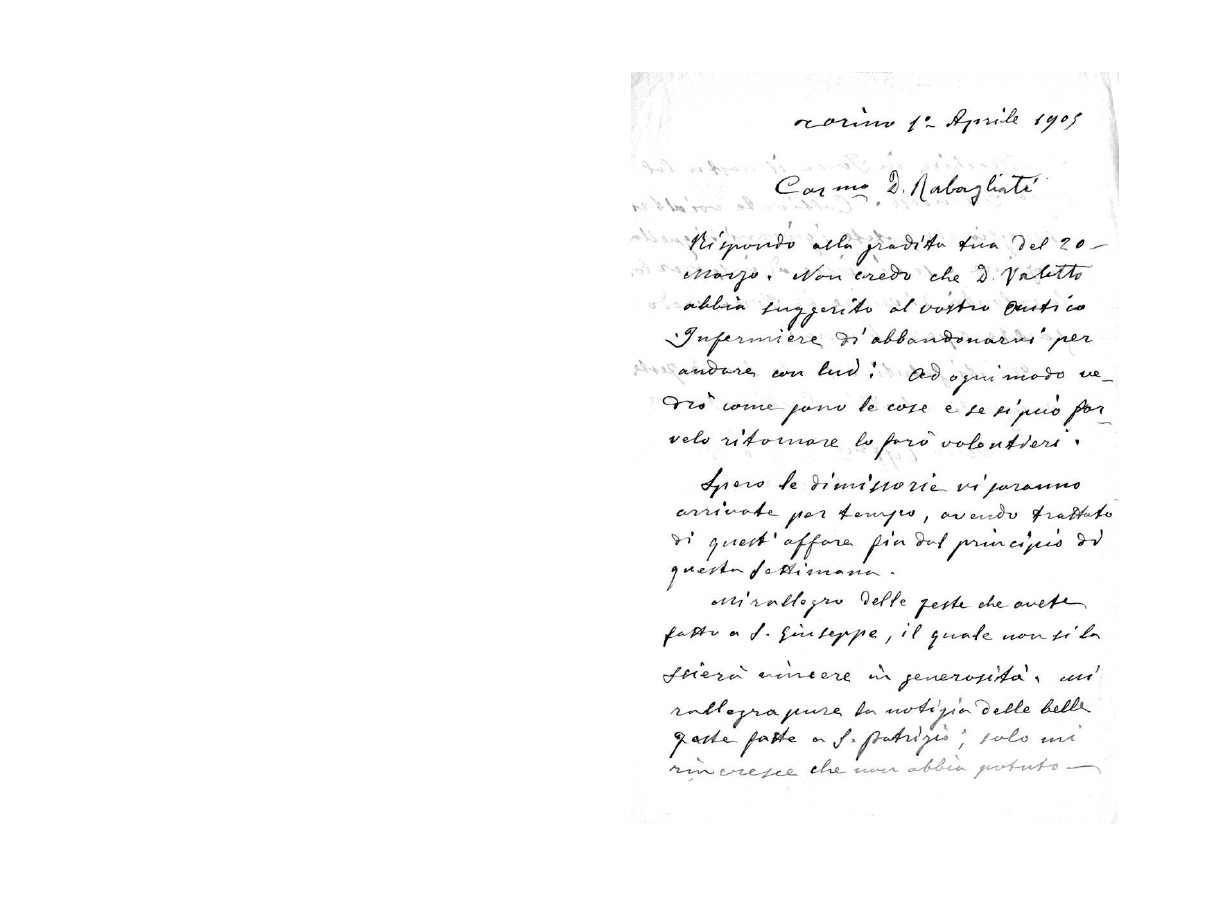 Torino 1º Aprile 1905
Car.mo D. Rabagliati
Rispondo alla gradita tua del 20
Marzo. Non credo che D. Valetto
abbia suggerito al vostro
Infermiere di abbandonarvi per
andare con lui! Ad ogni modo ve-
drò come sono le cose e se si può far-
velo ritornare lo farò volontieri.
Spero le dimissorie vi saranno
arrivate per tempo, avendo trattato
di quest'affare fin dal principio di
questa settimana.
Mi rallegro delle feste che avete
fatto a S. Giuseppe, il quale non si la
scierà vincere in generosità. Mi
rallegra pure la notizia delle belle
feste fatte a S. Patrizio; solo mi
rincresce che non abbia potuto